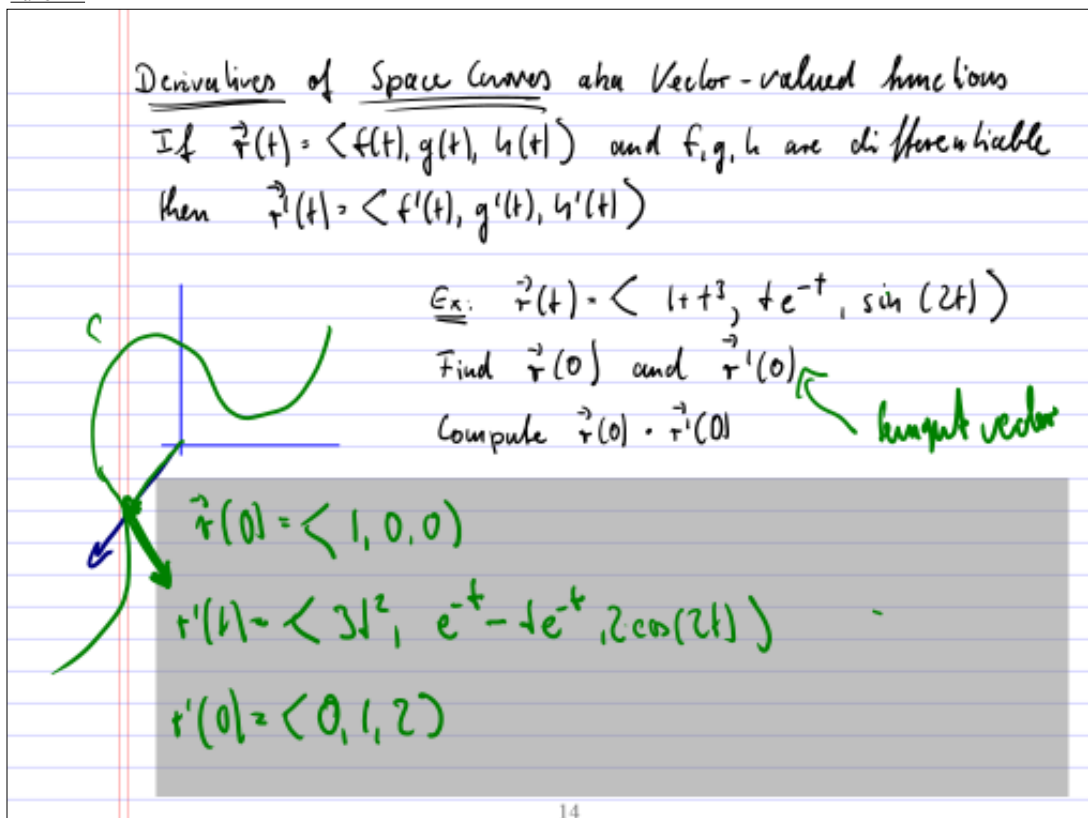 Derivatives of Space Curves aka Vector-valued functions
If r⃗(t) = <f(t), g(t), h(t)> and f, g, h are differentiable
then r⃗'(t) = <f'(t), g'(t), h'(t)>
Ex: r⃗(t) = < 1+t³, te⁻ᵗ, sin (2t)>
C
Find r⃗(0) and r⃗'(0)
tangent vector
Compute r⃗(0) · r⃗'(0)
r⃗(0) = <1, 0, 0>
r'(t) = <3t², e⁻ᵗ - te⁻ᵗ, 2cos(2t)>
r'(0) = <0, 1, 2>
14